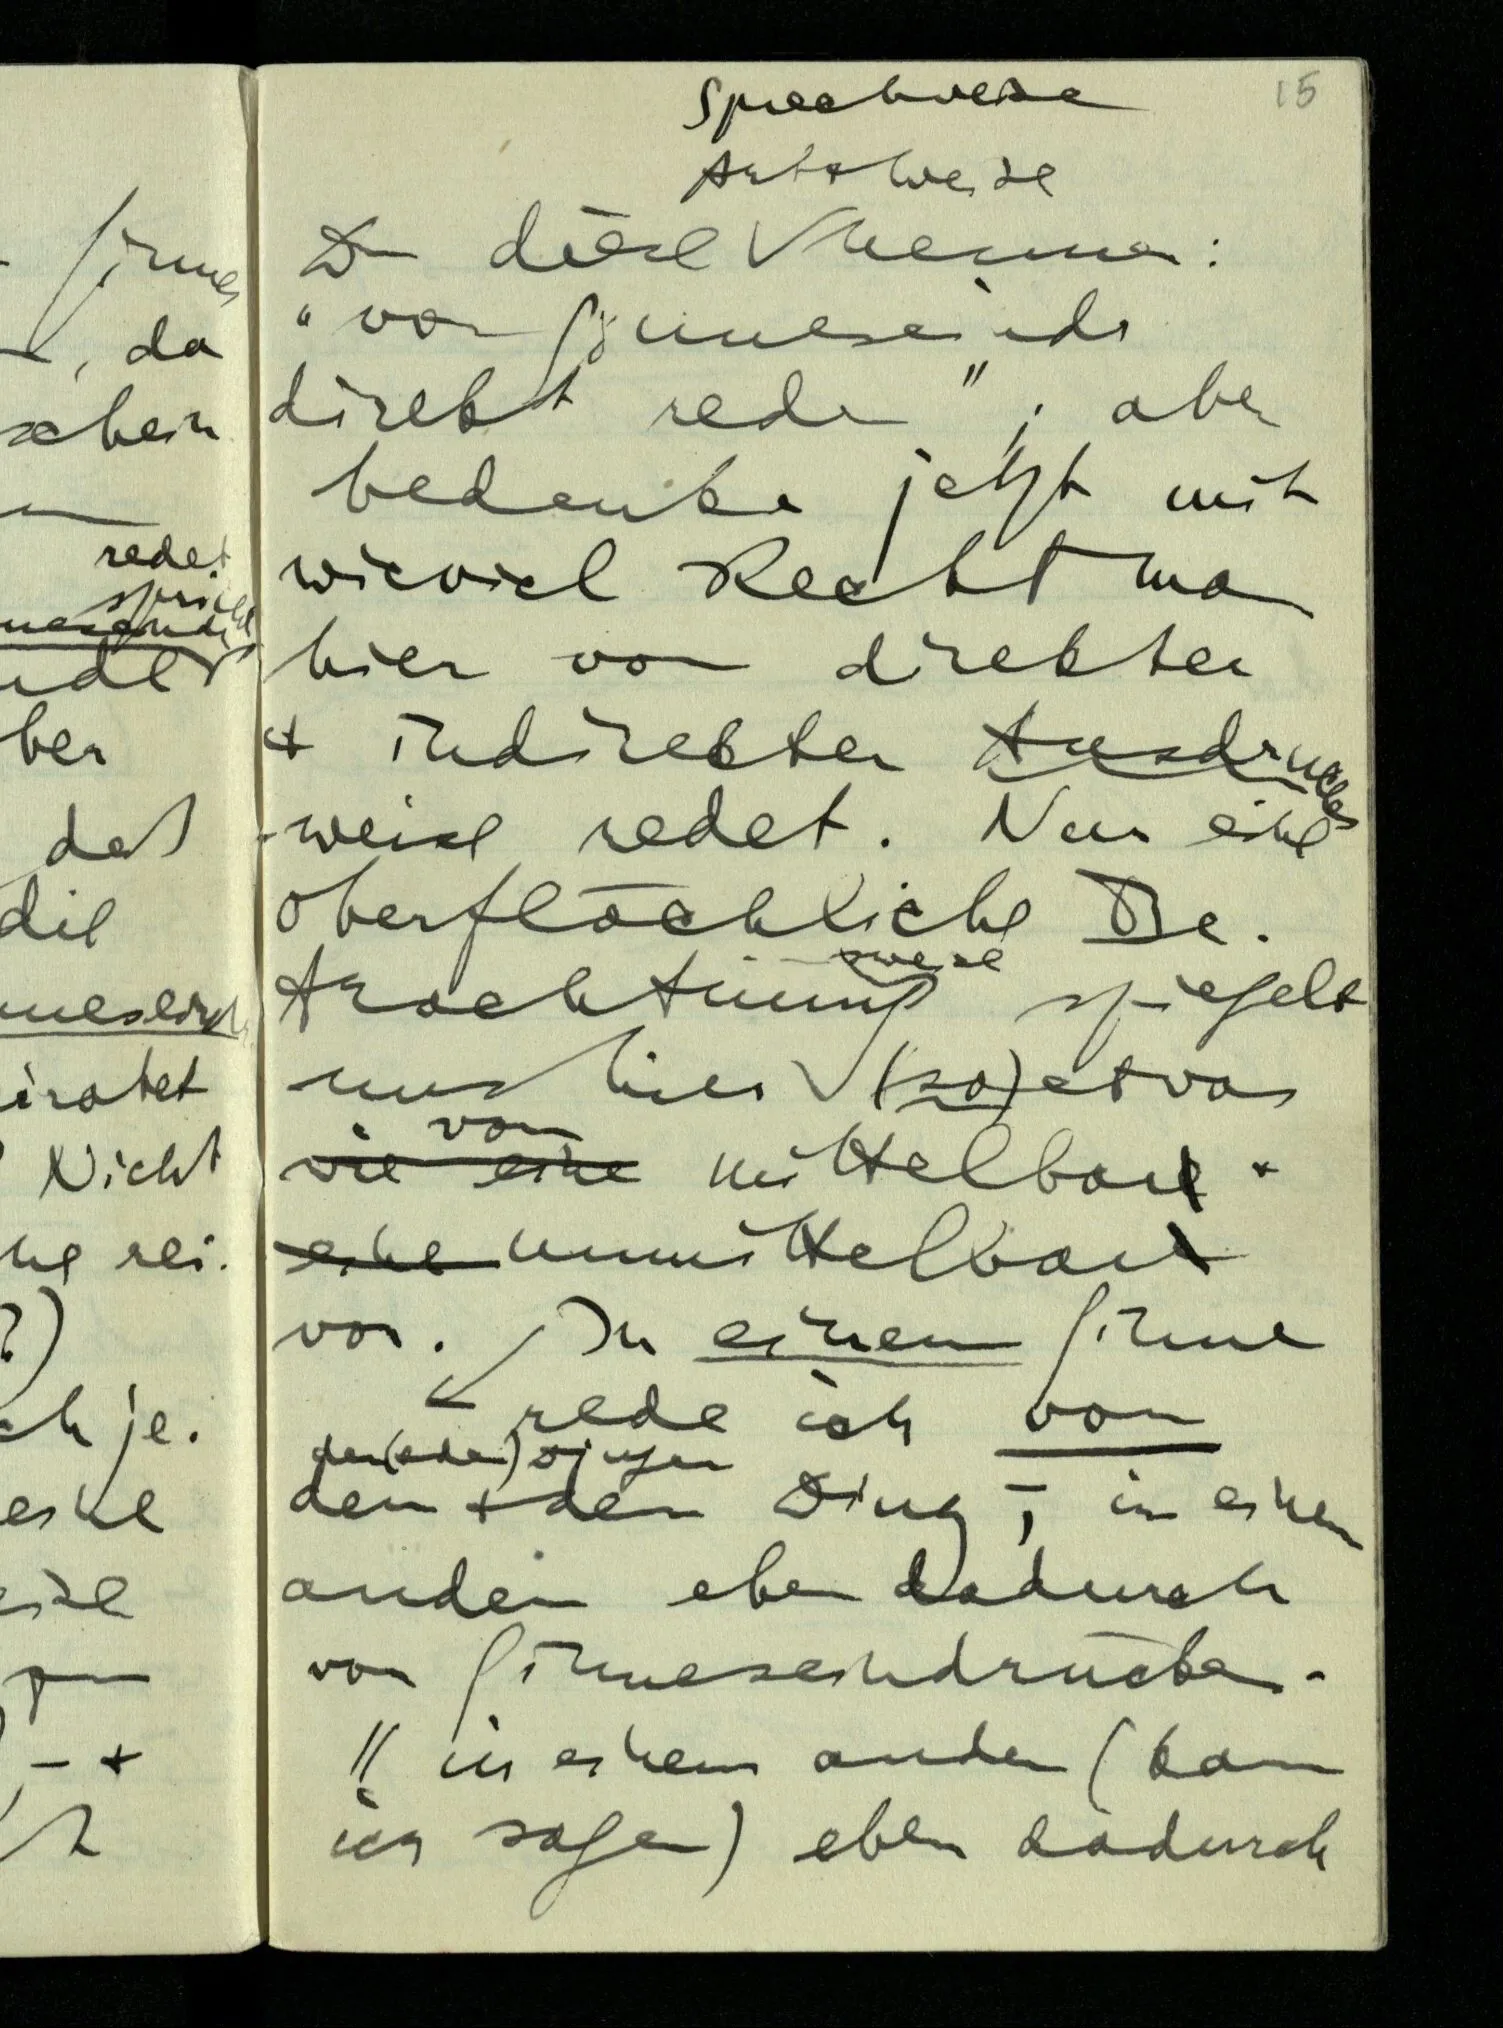 15
Sprechweise
Du diese nennen:
"von Sinneseindr
direkt reden"; aber
bedenke jetzt mit
wieviel Recht man
hier von direkter
+ indirekter Ausdrucks
-weise redet. Nur eine
oberflächliche Be-
trachtungsweise spiegelt
uns hier (so) etwas
von
wie eine mittelbar +
eine unmittelbar
vor. In einem Sinne
rede ich von
den (oder) Dingen
den + den Ding, in einem
andern eben dadurch
von Sinneseindrücken.
// in einem andern (kann
ich sagen) eben dadurch
Sinnes
, da
schein
redet
spricht
ber
daß
die
Nicht
ne rei.
?)
ch je.
eine
eise
- +